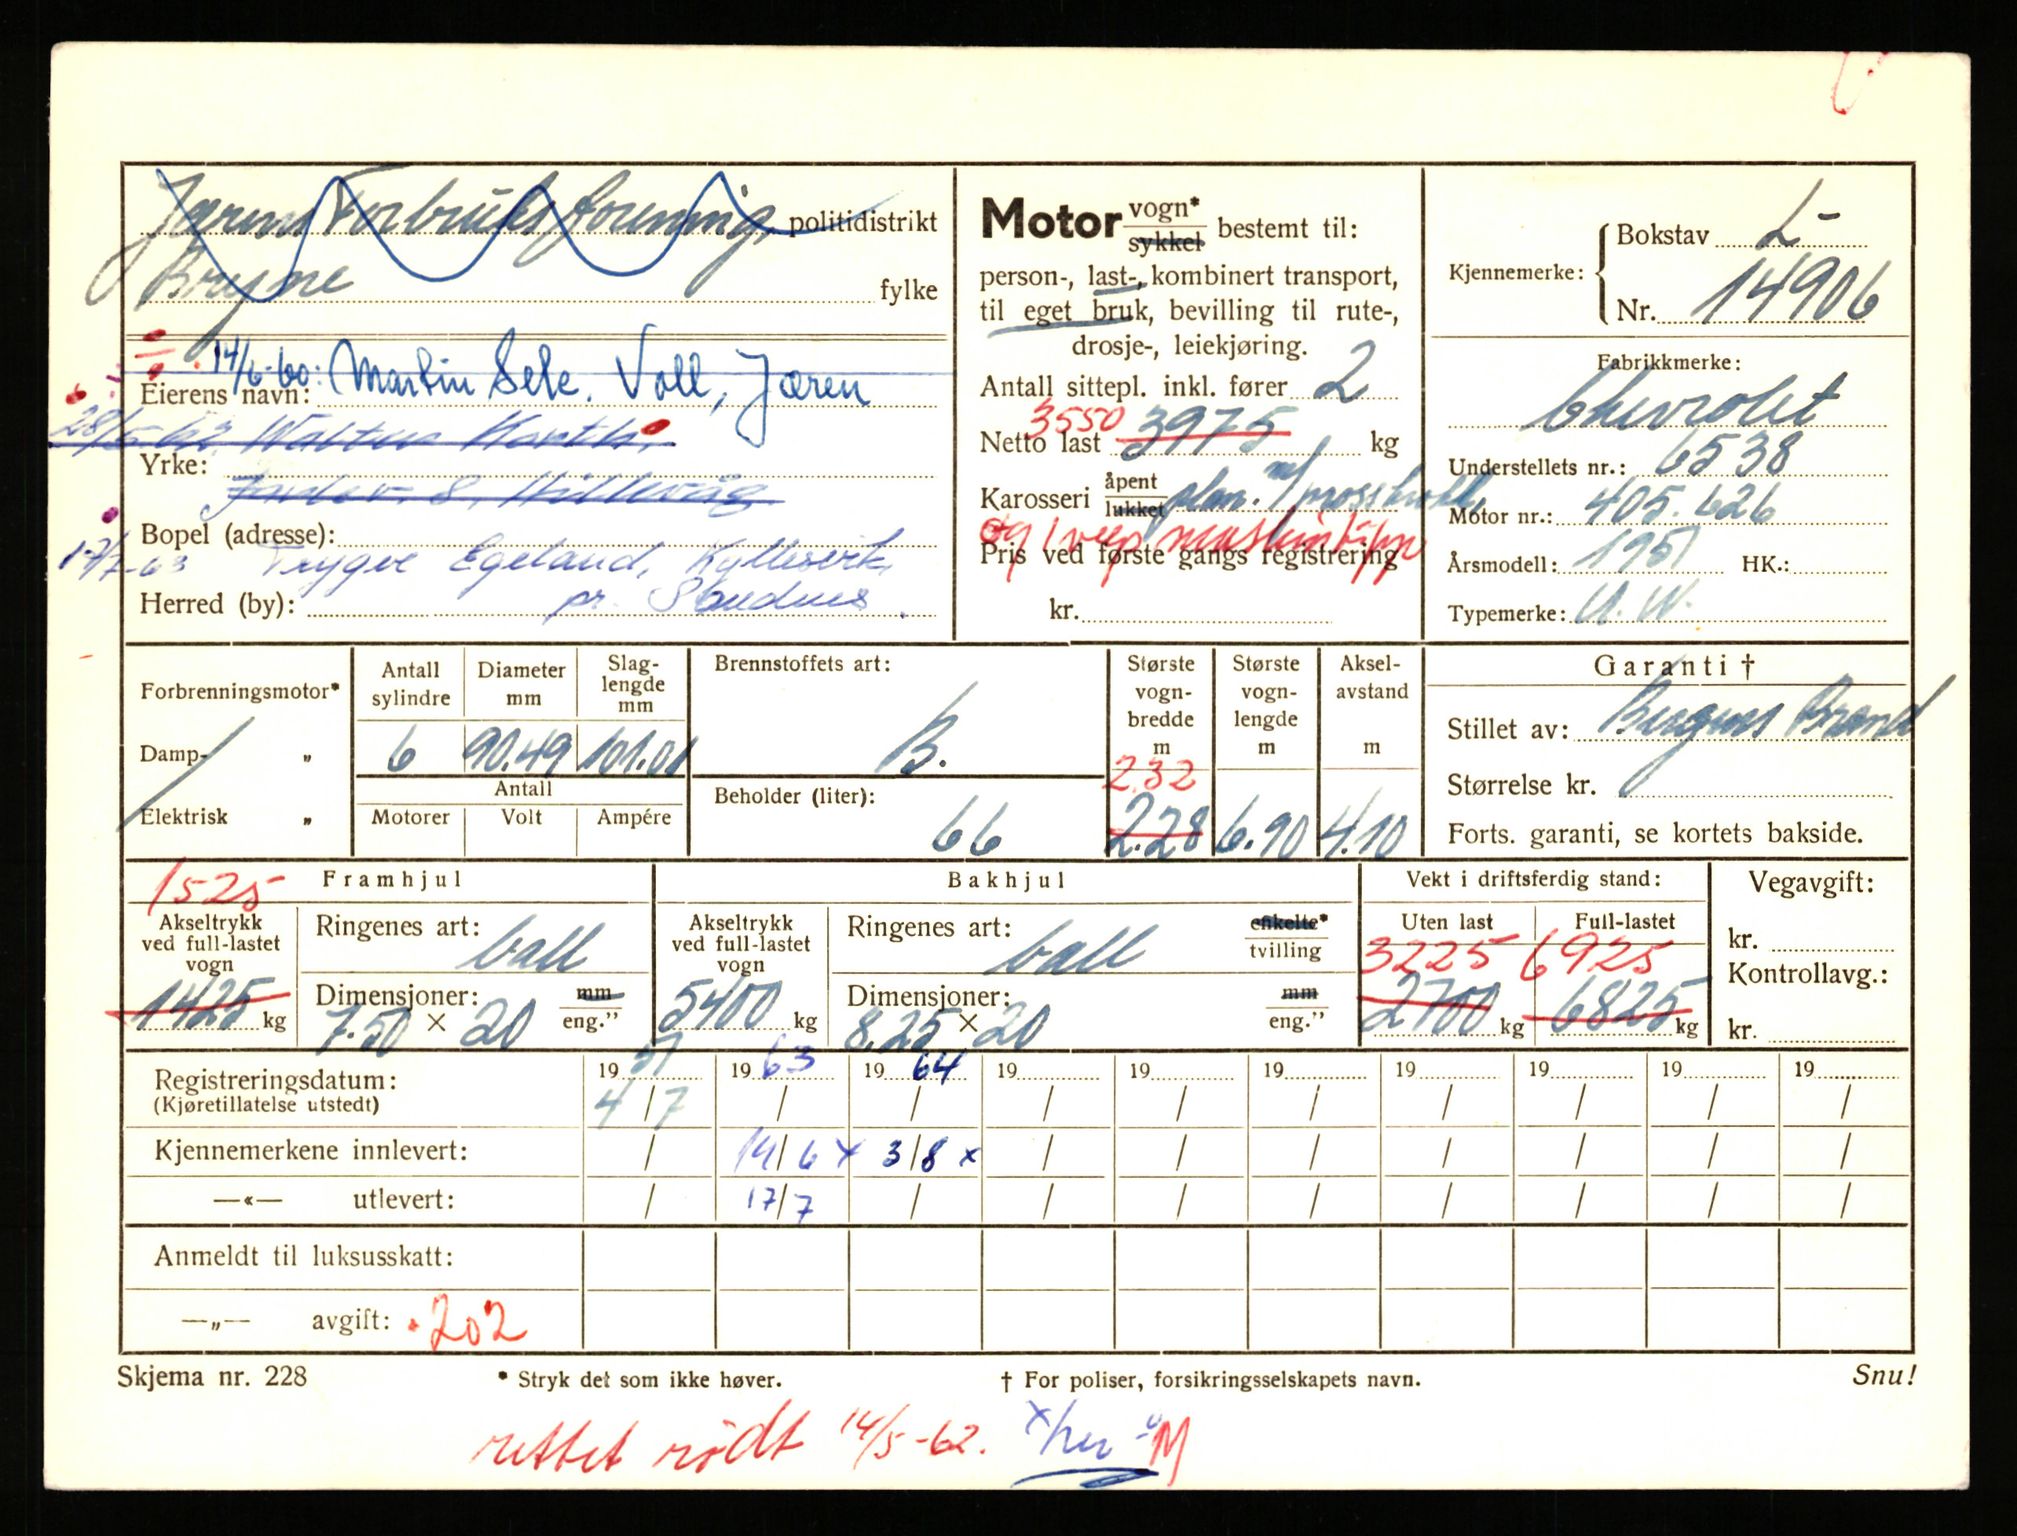 Jærens Forbruksforening, politidistrikt
Bryne fylke
14/6-60: Martin Sele. Voll, Jæren
Eierens navn:
28/5-62 Walter
Yrke:
Bopel (adresse):
17/7-63 Trygve Egeland, Kyllesvik,
Herred (by): pr. Sandnes.
Motor vogn*
sykkel bestemt til:
person-, last-, kombinert transport,
til eget bruk, bevilling til rute-,
drosje-, leiekjøring.
Antall sittepl. inkl. fører 2
3550
Netto last 3975 kg
Karosseri åpent
lukket plan. m/
og maskintipp
Pris ved første gangs registrering
kr.
Kjennemerke: Bokstav L-
Nr. 14906
Fabrikkmerke:
Chevrolet
Understellets nr.: 6538
Motor nr.: 405.626
Årsmodell: 1951 HK.:
Typemerke: U.W.
Forbrenningsmotor*
Damp- „
Elektrisk „
Antall sylindre Diameter mm Slag-lengde mm
6 90.49 101.01
Antall
Motorer Volt Ampére
Brennstoffets art:
B.
Beholder (liter):
66
Største vogn-bredde m Største vogn-lengde m Aksel-avstand m
2.32
2.28 6.90 4.10
Garanti †
Stillet av: Bergens Brand
Størrelse kr.
Forts. garanti, se kortets bakside.
1525 Framhjul
Akseltrykk ved full-lastet vogn
1425 kg
Ringenes art: ball
Dimensjoner: mm
7.50 × 20 eng.”
Bakhjul
Akseltrykk ved full-lastet vogn
5400 kg
Ringenes art: ball enkelte*
tvilling
Dimensjoner: mm
8.25 × 20 eng.”
Vekt i driftsferdig stand:
Uten last Full-lastet
3225 6925
2700 kg 6825 kg
Vegavgift:
kr.
Kontrollavg.:
kr.
Registreringsdatum: 1951 1963 1964 19 19 19 19 19 19 19
(Kjøretillatelse utstedt) 4/7 / / / / / / / / /
Kjennemerkene innlevert: / 14/6 x 3/8 x / / / / / / /
—«— utlevert: / 17/7 / / / / / / / /
Anmeldt til luksusskatt:
—„— avgift: 202
Skjema nr. 228 * Stryk det som ikke høver. † For poliser, forsikringsselskapets navn. Snu!
rettet rødt 14/5-62. x/her